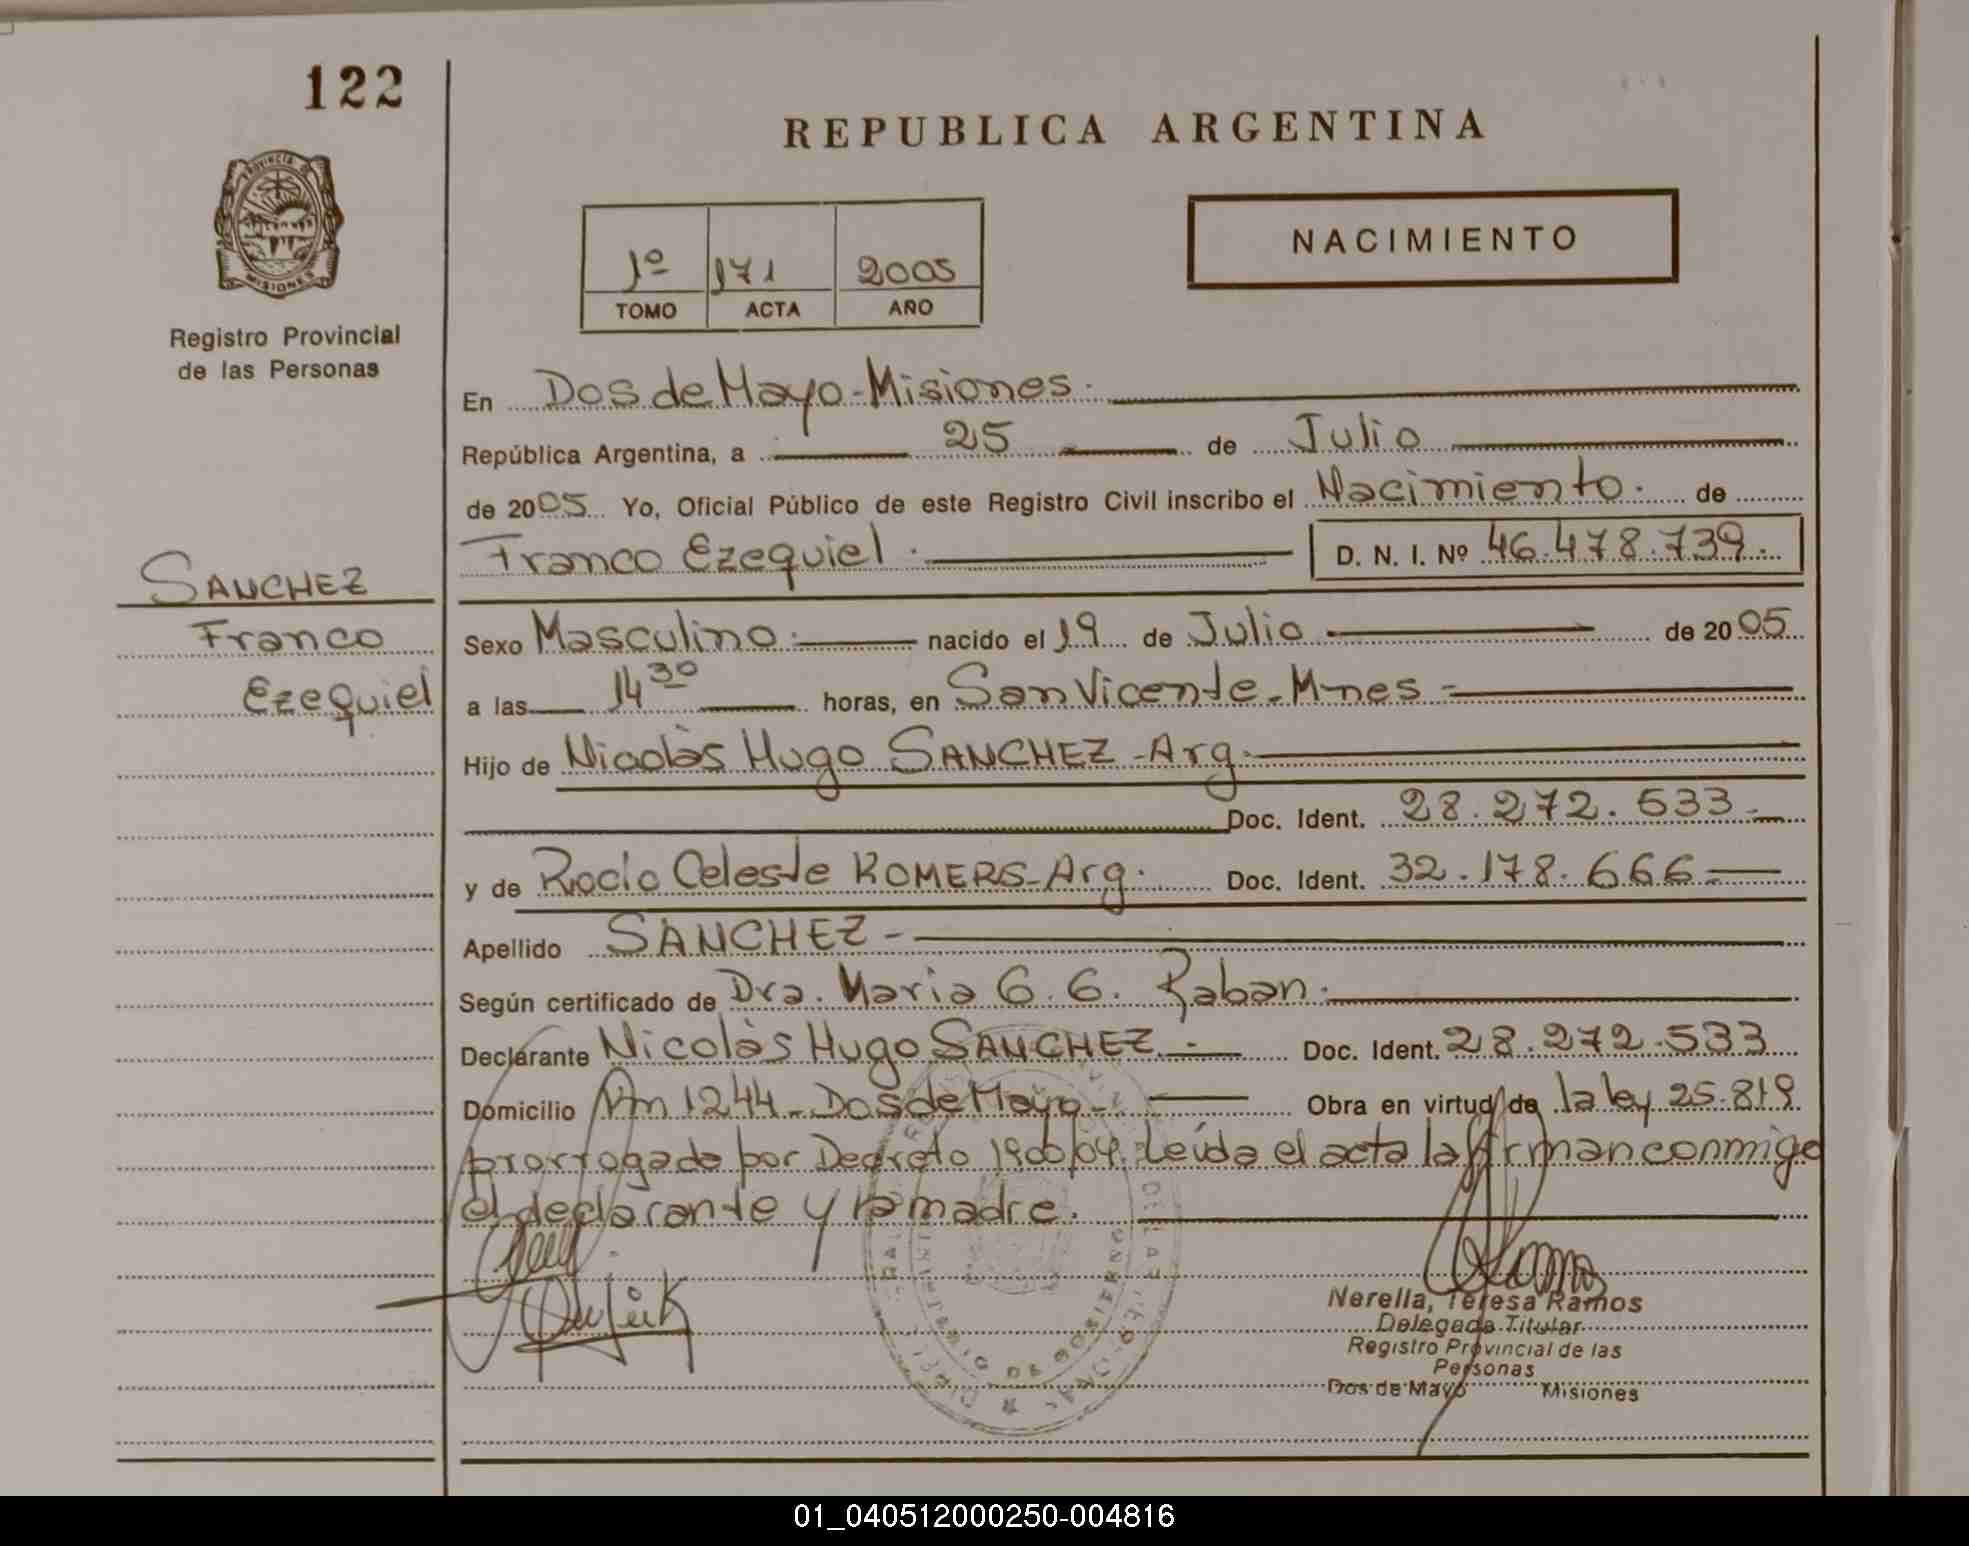 122
REPUBLICA ARGENTINA
PROVINCIA DE
MISIONES
Registro Provincial
de las Personas
1º 171 2005
TOMO ACTA AÑO
NACIMIENTO
En Dos de Mayo-Misiones.
República Argentina, a 25 de Julio
de 2005 Yo, Oficial Público de este Registro Civil inscribo el Nacimiento. de
Franco Ezequiel. D. N. I. Nº 46.478.739.
SANCHEZ
Franco
Ezequiel
Sexo Masculino. nacido el 19 de Julio de 2005
a las 14 30 horas, en San Vicente-Mnes-
Hijo de Nicolàs Hugo SANCHEZ-Arg.
Doc. Ident. 28.272.533-
y de Rocío Celeste ROMERS-Arg. Doc. Ident. 32.178.666
Apellido SANCHEZ-
Según certificado de Dra. Maria G. G. Raban.
Declarante Nicolàs Hugo SANCHEZ.- Doc. Ident. 28.272.533
Domicilio Km 1244-Dos de Mayo- Obra en virtud de la ley 25.819
prorrogada por Decreto 1900/04. Leída el acta la firman conmigo
el declarante y la madre.
Nerella, Teresa Ramos
Delegada Titular
Registro Provincial de las
Personas
Dos de Mayo Misiones
01_040512000250-004816